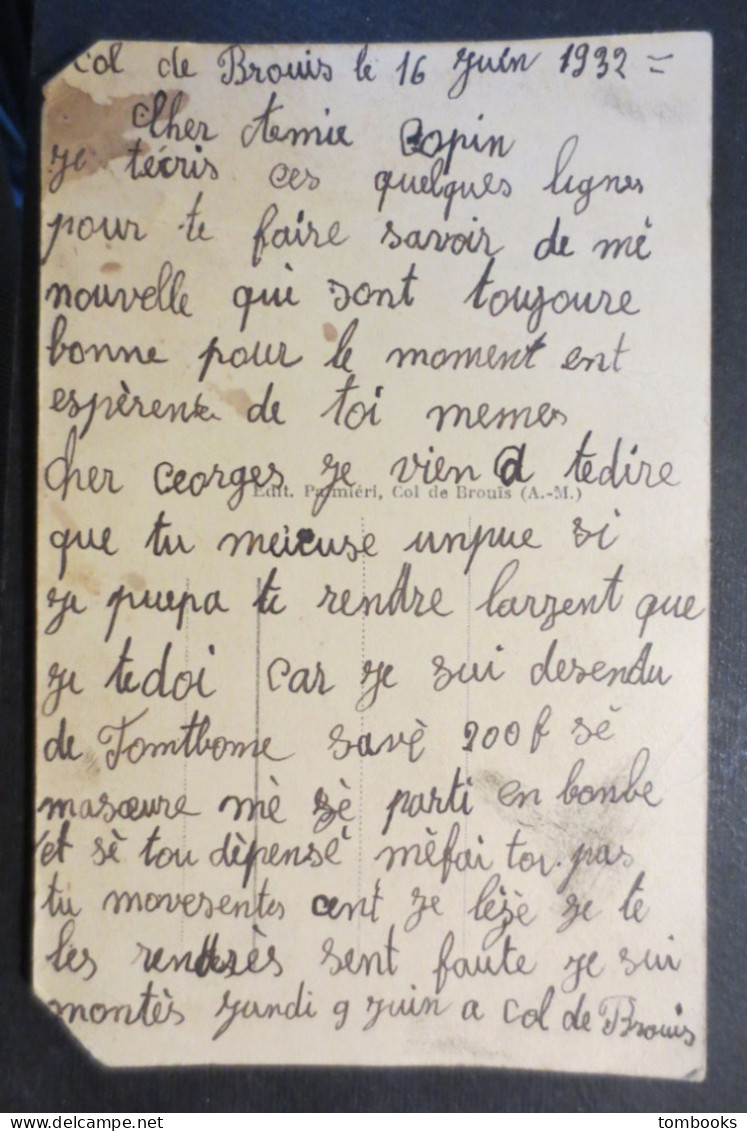 Col de Brouis le 16 Juin 1932 =
Cher Copin
je técris ces quelques lignes
pour te faire savoir de mè
nouvelle qui sont toujoure
bonne pour le moment ent
espèrent de toi memes
Cher Georges je vien a tedire
Edit. Palmiéri, Col de Brouis (A.-M.)
que tu meicuse unpue si
je puepa te rendre larzent que
je tedoi car je sui desendu
de savè 200f sè
masœure mè jè parti en bonbe
et sè tou dèpensé mèfai toi pas
tu movesentes cent je lèzè je te
les renderès sent faute je sui
montès jundi 9 juin a Col de Brouis
tombooks